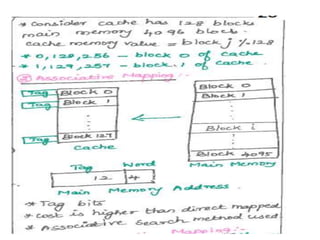 * Consider cache has 128 blocks
main memory 4096 block.
cache memory value = block j % 128
* 0,128,256 - block 0 of cache
* 1,129,257 - block 1 of cache.
② Associative Mapping:-
Tag Block 0
Tag Block 1
Tag Block 127
Cache
Block 0
Block 1
Block i
Block 4095
Main Memory
Tag Word
12 4
Main Memory Address.
* Tag bits
* Cost is higher than direct mapped
* Associative search method used
Mapping:-